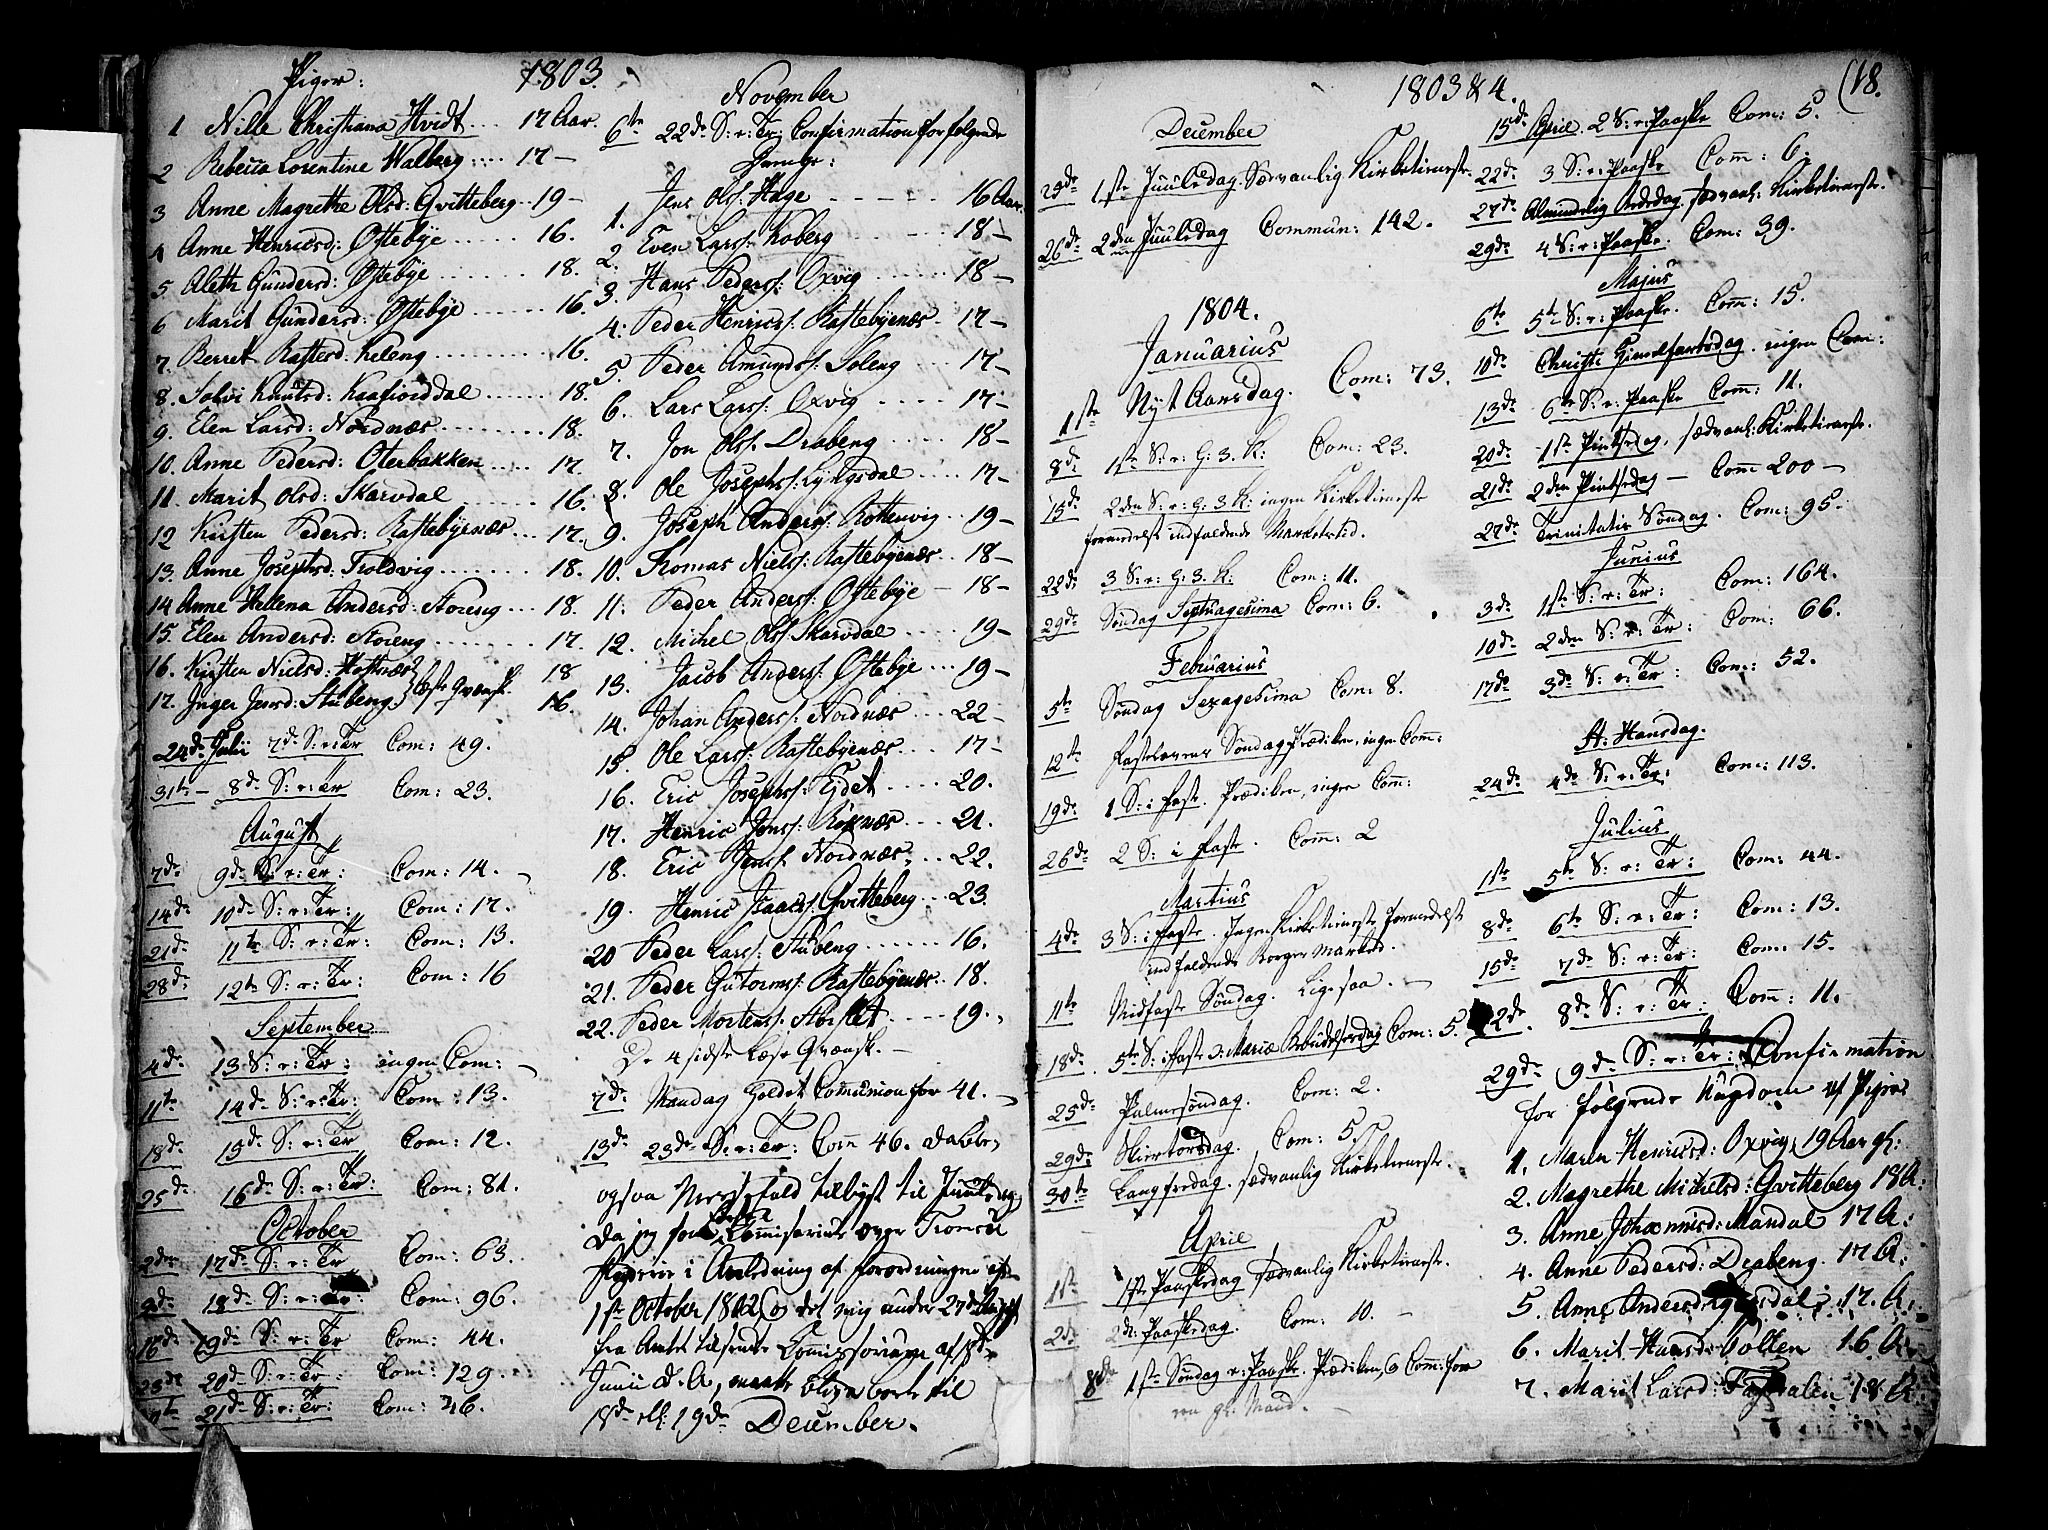 Piger:
1803.
1 Nille Christiana Hvidt .... 17 Aar.
2 Rebecca Lorentine Walberg .... 17 —
3 Anne Magrethe Olsd: Qvitteberg .. 19 —
4 Anne Henricsd: Oftebÿe ..... 16.
5. Aleth Gundersd: Oftebÿe ...... 18.
6 Marit Gundersd: Oftebÿe ...... 16.
7. Berret Rastesd: Keleng ........ 16.
8. Solvi Knutsd: Kaafiorddal ...... 18.
9. Elen Larsd: Nordnæs ........ 18.
10. Anne Pedersd: Oterbakken ..... 17.
11. Marit Olsd: Skarvdal ....... 16.
12 Kirsten Pedersd: Rastebÿenæs ... 17.
13. Anne Josephsd: Troldvig ....... 18.
14 Anne Hellena Andersd: Storeng ... 18.
15. Elen Andersd: Storeng ....... 17.
16. Kirsten Nielsd: 18
17. Inger Jensd: Stubeng læste Qvænsk. 16.
24de Julii 7de S: e: Tr Com: 49.
31te — 8de S: e: Tr Com: 23.
August
7de 9de S: e: Tr: Com: 14.
14de 10de S: e: Tr: Com: 17.
21de 11te S: e: Tr: Com: 13.
28de 12te S: e: Tr: Com: 16
September
4de 13 S: e: Tr: ingen Com:
11te 14de S: e: Tr: Com: 13.
18de 15de S: e: Tr Com: 12.
25de 16de S: e: Tr: Com: 81.
October
2den 17de S: e: Tr Com: 63.
9de 18de S: e: Tr: Com: 96.
16de 19de S: e: Tr Com: 44.
20de S: e: Tr: Com: 129.
21de S: e: Tr: Com: 46.
November
6te 22de S: e: Tr: Confirmation for følgende
Drenge:
1. Jens Ols: Hage ..... 16 Aar.
2. Even Larss: Koberg ..... 18 —
3. Hans Pederss: Oxvig ..... 18 —
4. Peder Henricss: Rastebÿenæs . 17 —
5. Peder Amundss: Soleng .... 17 —
6. Lars Larss: Oxvig .... 17 —
7. Jon Ols: Drabeng ..... 18 —
8. Ole Josephss: Lyngsdal .... 17 —
9. Joseph Anderss: Rottenvig .. 19 —
10. Thomas Nielss: Rastebÿenæs .. 18 —
11. Peder Anderss: Oftebÿe — 18 —
12. Michel Ols: Skarvdal ..... 19 —
13. Jacob Anderss: Oftebÿe ... 19 —
14. Johan Anderss: Nordnæs ... 22 —
15. Ole Larss: Rastebÿenæs .... 17 —
16. Eric Josephss: Ejdet ..... 20.
17. Henric Jenss: Røxnæs ... 21.
18. Eric Jenss: Nordnæs ... 22.
19. Henric Isaacss: Qvitteberg .. 23.
20 Peder Larss: Stubeng ...... 16.
21. Peder Gutormss: Rastebÿenæs .. 18.
22. Peder Mortenss: .... 19.
De 4 sidste læse Qvænsk. —
7de Mandag holdet Communion for 41. —
13de 23de S: e: Tr: Com 46.
ogsaa Messefald tilbyst til Juuledag,
da jeg som Commissarius over Tromsøe
i Anledning af forordningen af
1ste October 1802, og det mig under 27de August
fra Amtet tilsendte Commissorium af 8de
Junii d. A., maatte blive borte til
18de ell: 19de December.
1803 & 4.
(18.
December
25de 1ste Juuledag. Sædvanlig Kirketieneste.
26de 2den Juuledag Commun: 142.
1804.
Januarius
1ste Nyt Aarsdag. Com: 73.
8de 1ste S: e: H: 3. K: Com: 23.
15de 2den S: e: H: 3 K: ingen Kirketieneste
formedelst indfaldende Markedstid.
22de 3 S: e: H: 3. K: Com: 11.
29de Søndag Septuagesima Com: 6.
Februarius
5te Søndag Sexagesima Com: 8.
12te Fastelavens Søndag Prædiken, ingen Com:
19de 1 S: i faste. Prædiken, ingen Com:
26de 2 S: i faste. Com: 2
Martius
4de 3 S: i faste. Ingen Kirketieneste formedelst
indfaldende Marked.
11te Midfaste Søndag. Ligesaa. —
18de 5te S: i faste Mariæ Bebudelsesdag Com: 5.
25de Palmesøndag. Com: 2.
29de Skiertorsdag. Com: 57
30te Langfredag. sædvanlig Kirketieneste.
April
1ste 1ste Paaskedag sædvanlig Kirketieneste.
2de 2den Paaskedag. Com: 10. —
8de 1ste Søndag e: Paaske. Prædiken, & Com: for
een gl: Mand.
15de April. 2 S: e: Paaske Com: 5.
22de 3 S: e: Paaske Com: 6.
27de Almindelig Bededag, sædvanl: Kirketieneste.
29de 4 S: e: Paaske. Com: 39.
Majus
6te 5te S: e: Paaske. Com: 15.
10de Christi Himelfartsdag. ingen Com:
13de 6te S: e: Paaske Com: 11.
20de 1ste Pintsedag, sædvanl: Kirketieneste.
21de 2den Pintsedag — Com 200 —
27de Trinitatis Søndag. Com: 95.
Junius
3de 1ste S: e: Tr: Com: 164.
10de 2den S: e: Tr: Com: 66.
17de 3de S: e: Tr: Com: 52.
St: Hansdag.
24de 4de S: e: Tr: Com: 113.
Julius
1ste 5te S: e: Tr: Com: 44.
8de 6te S: e: Tr: Com: 13.
15de 7de S: e: Tr: Com: 15.
22de. 8de S: e: Tr: Com: 11.
29de 9de S: e: Tr: Confirmation
for følgende Ungdom af Piger
1. Maren Henricsd: Oxvig, 19 Aar gl:
2. Magrethe Michelsd: Qvitteberg 18 A:
3. Anne Johannisd: Mandal 17 A:
4. Anne Pedersd: Drabeng. 17 A:
5. Anne Andersd: 17. A:
6. Marit Hansd: Volten 16. A:
7. Marit Larsd: 18 A: